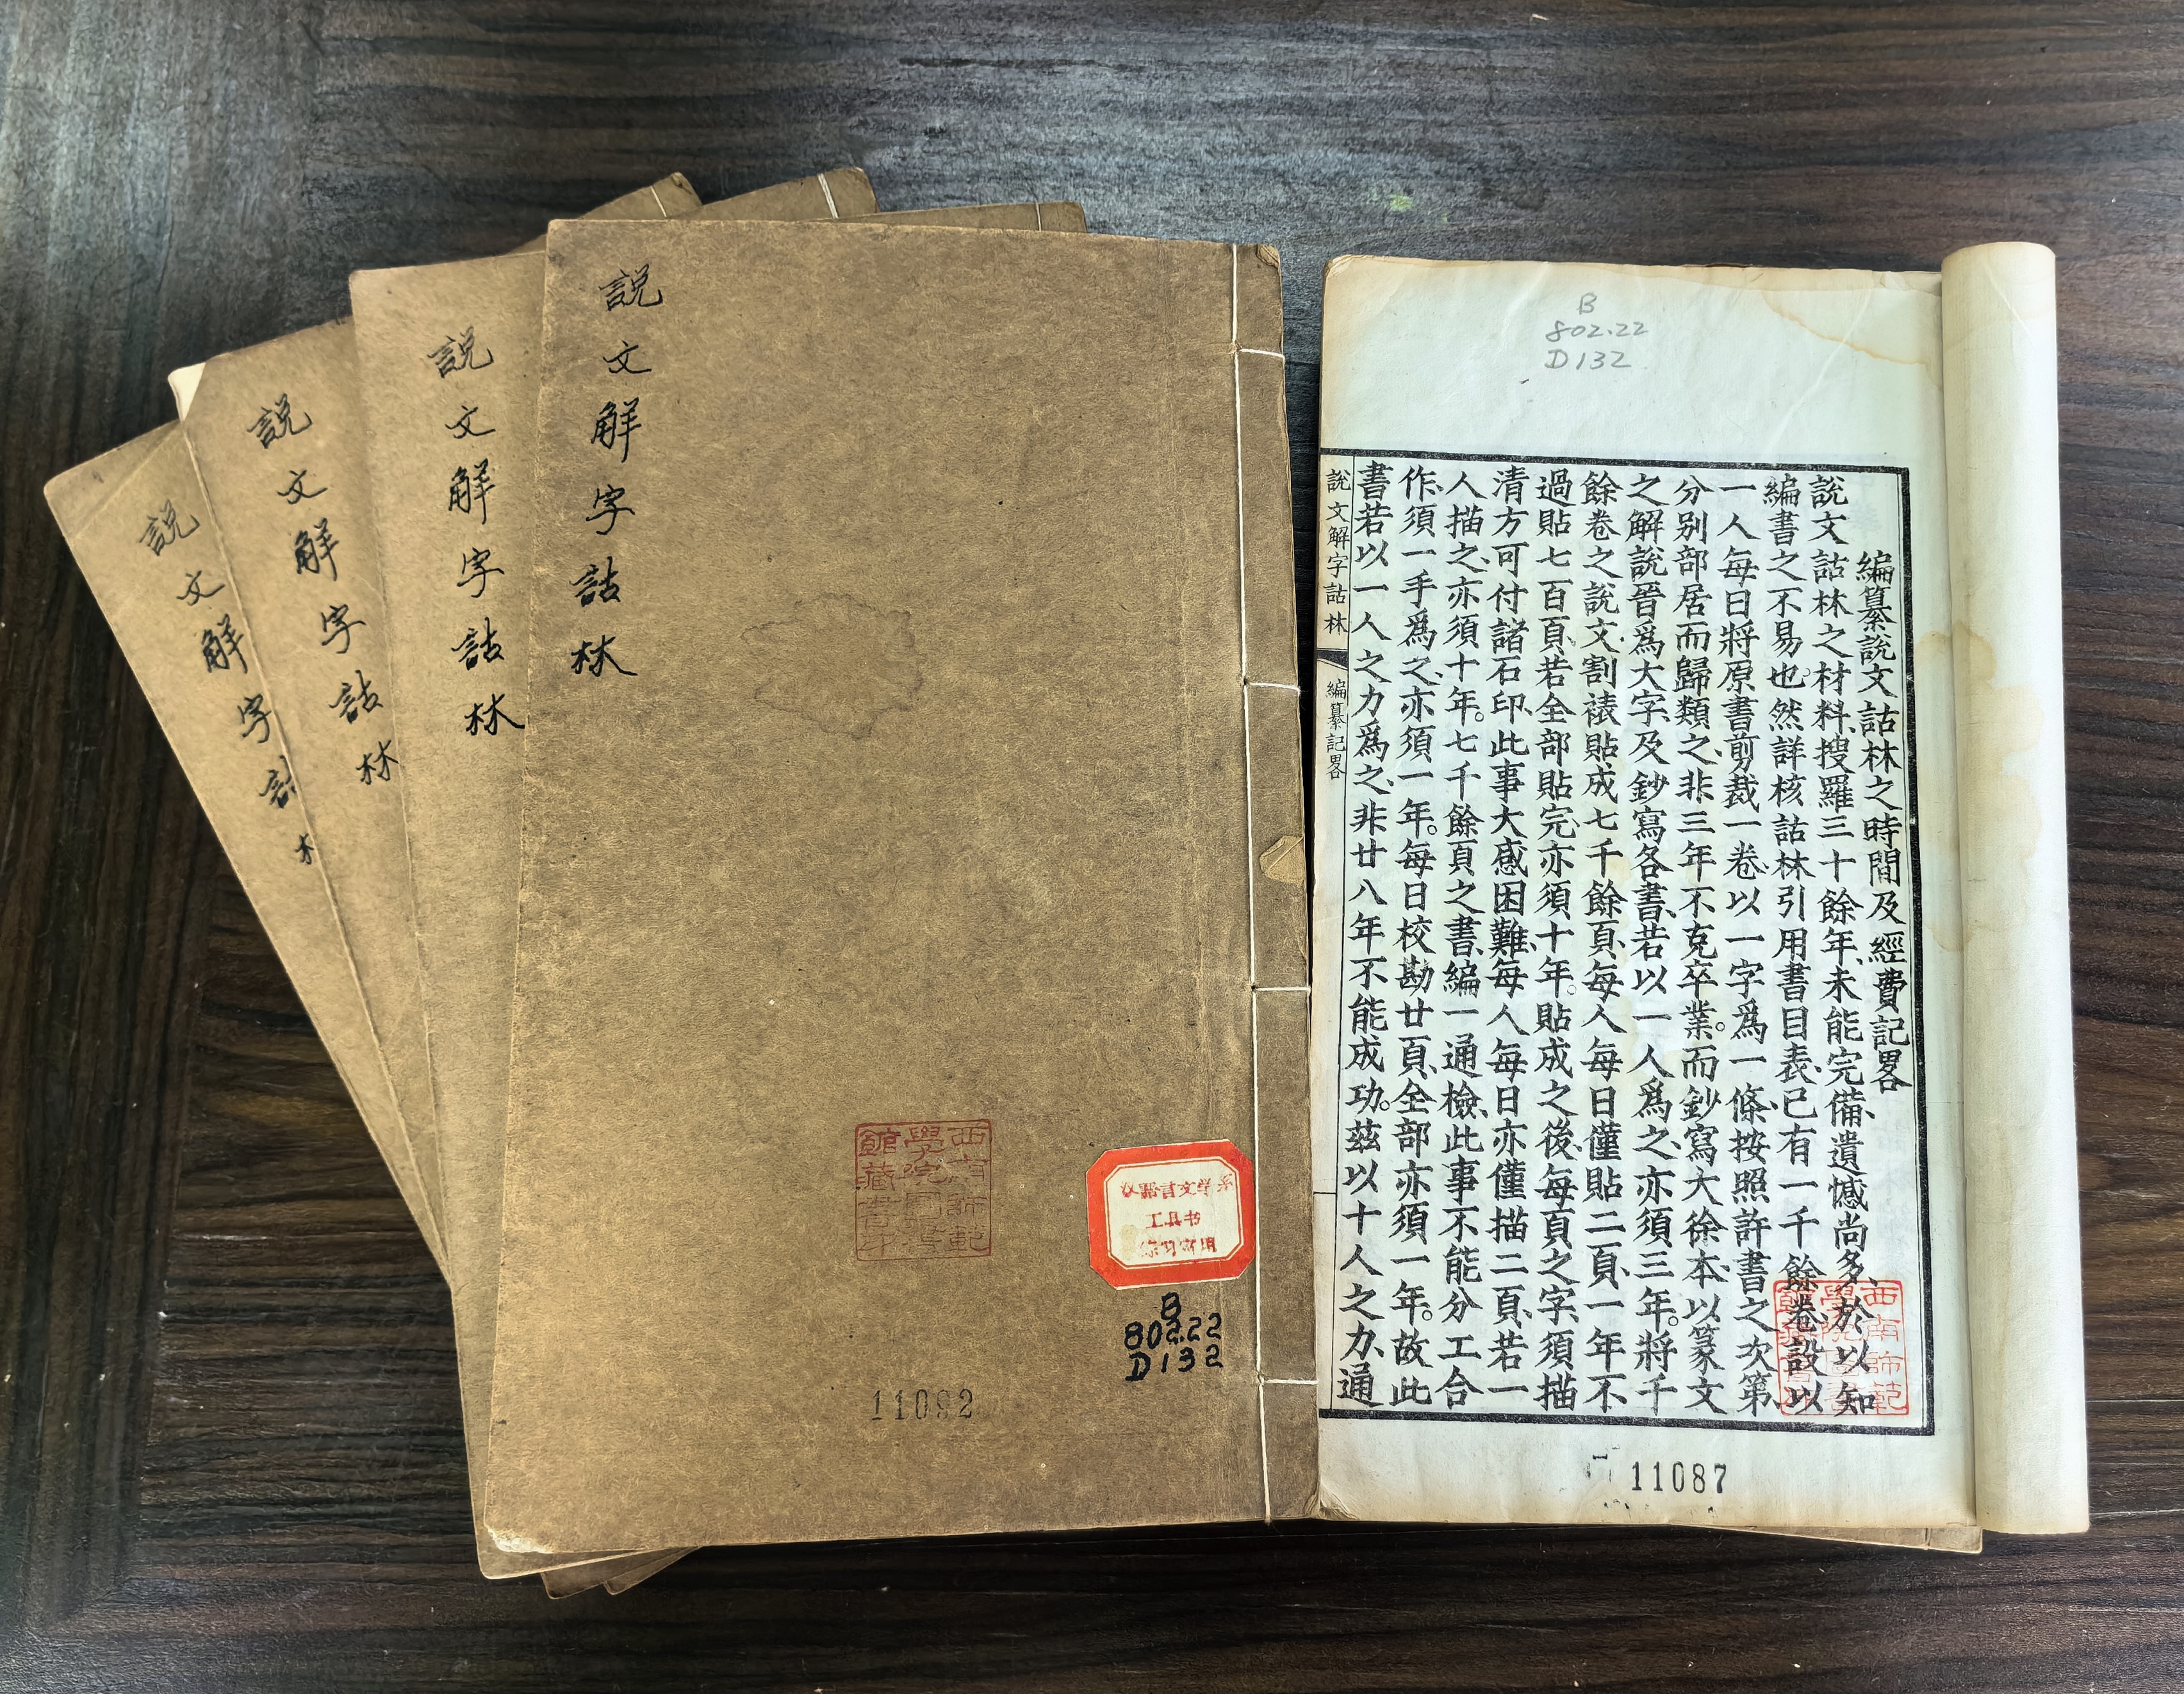 説文解字詁林
説文解字詁林
説文解字詁林
説文解字詁
西南師範
學院圖書
館藏書章
汉語言文学系
工具书
B
802.22
D132
11092
B
802.22
D132
編纂説文詁林之時間及經費記畧
説文詁林之材料、搜羅三十餘年、未能完備、遺憾尚多、於以知
編書之不易也。然詳核詁林引用書目表、已有一千餘卷、設以
一人每日將原書剪裁一卷、以一字爲一條、按照許書之次第、
分別部居而歸類之、非三年不克卒業。而鈔寫大徐本、以篆文
之解説晉爲大字、及鈔寫各書、若以一人爲之、亦須三年。將千
餘卷之説文、割裱貼成七千餘頁、每人每日僅貼二頁、一年不
過貼七百頁、若全部貼完、亦須十年。貼成之後、每頁之字、須描
清方可付諸石印、此事大感困難、每人每日亦僅描二頁、若一
人描之、亦須十年。七千餘頁之書、編一通檢、此事不能分工合
作、須一手爲之、亦須一年。每日校勘廿頁、全部亦須一年。故此
書若以一人之力爲之、非廿八年不能成功。茲以十人之力、通
説文解字詁林
編纂記畧
西南師範
11087